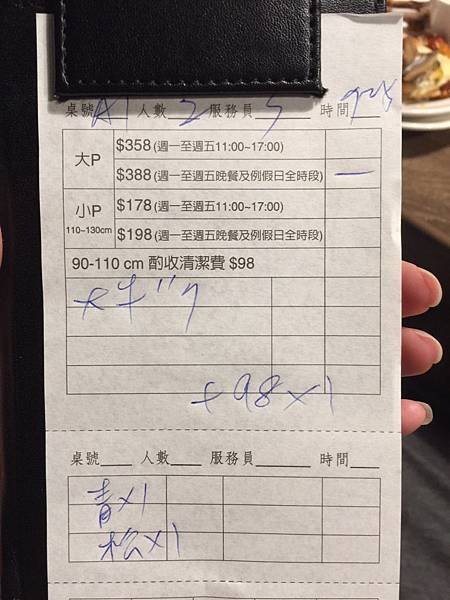 桌號 A1 人數 2 服務員 時間
大P $358 (週一至週五11:00~17:00)
$388 (週一至週五晚餐及例假日全時段) 一
小P 110~130cm $178 (週一至週五11:00~17:00)
$198 (週一至週五晚餐及例假日全時段)
90-110 cm 酌收清潔費 $98
+98×1
桌號 人數 服務員 時間
青×1
松×1